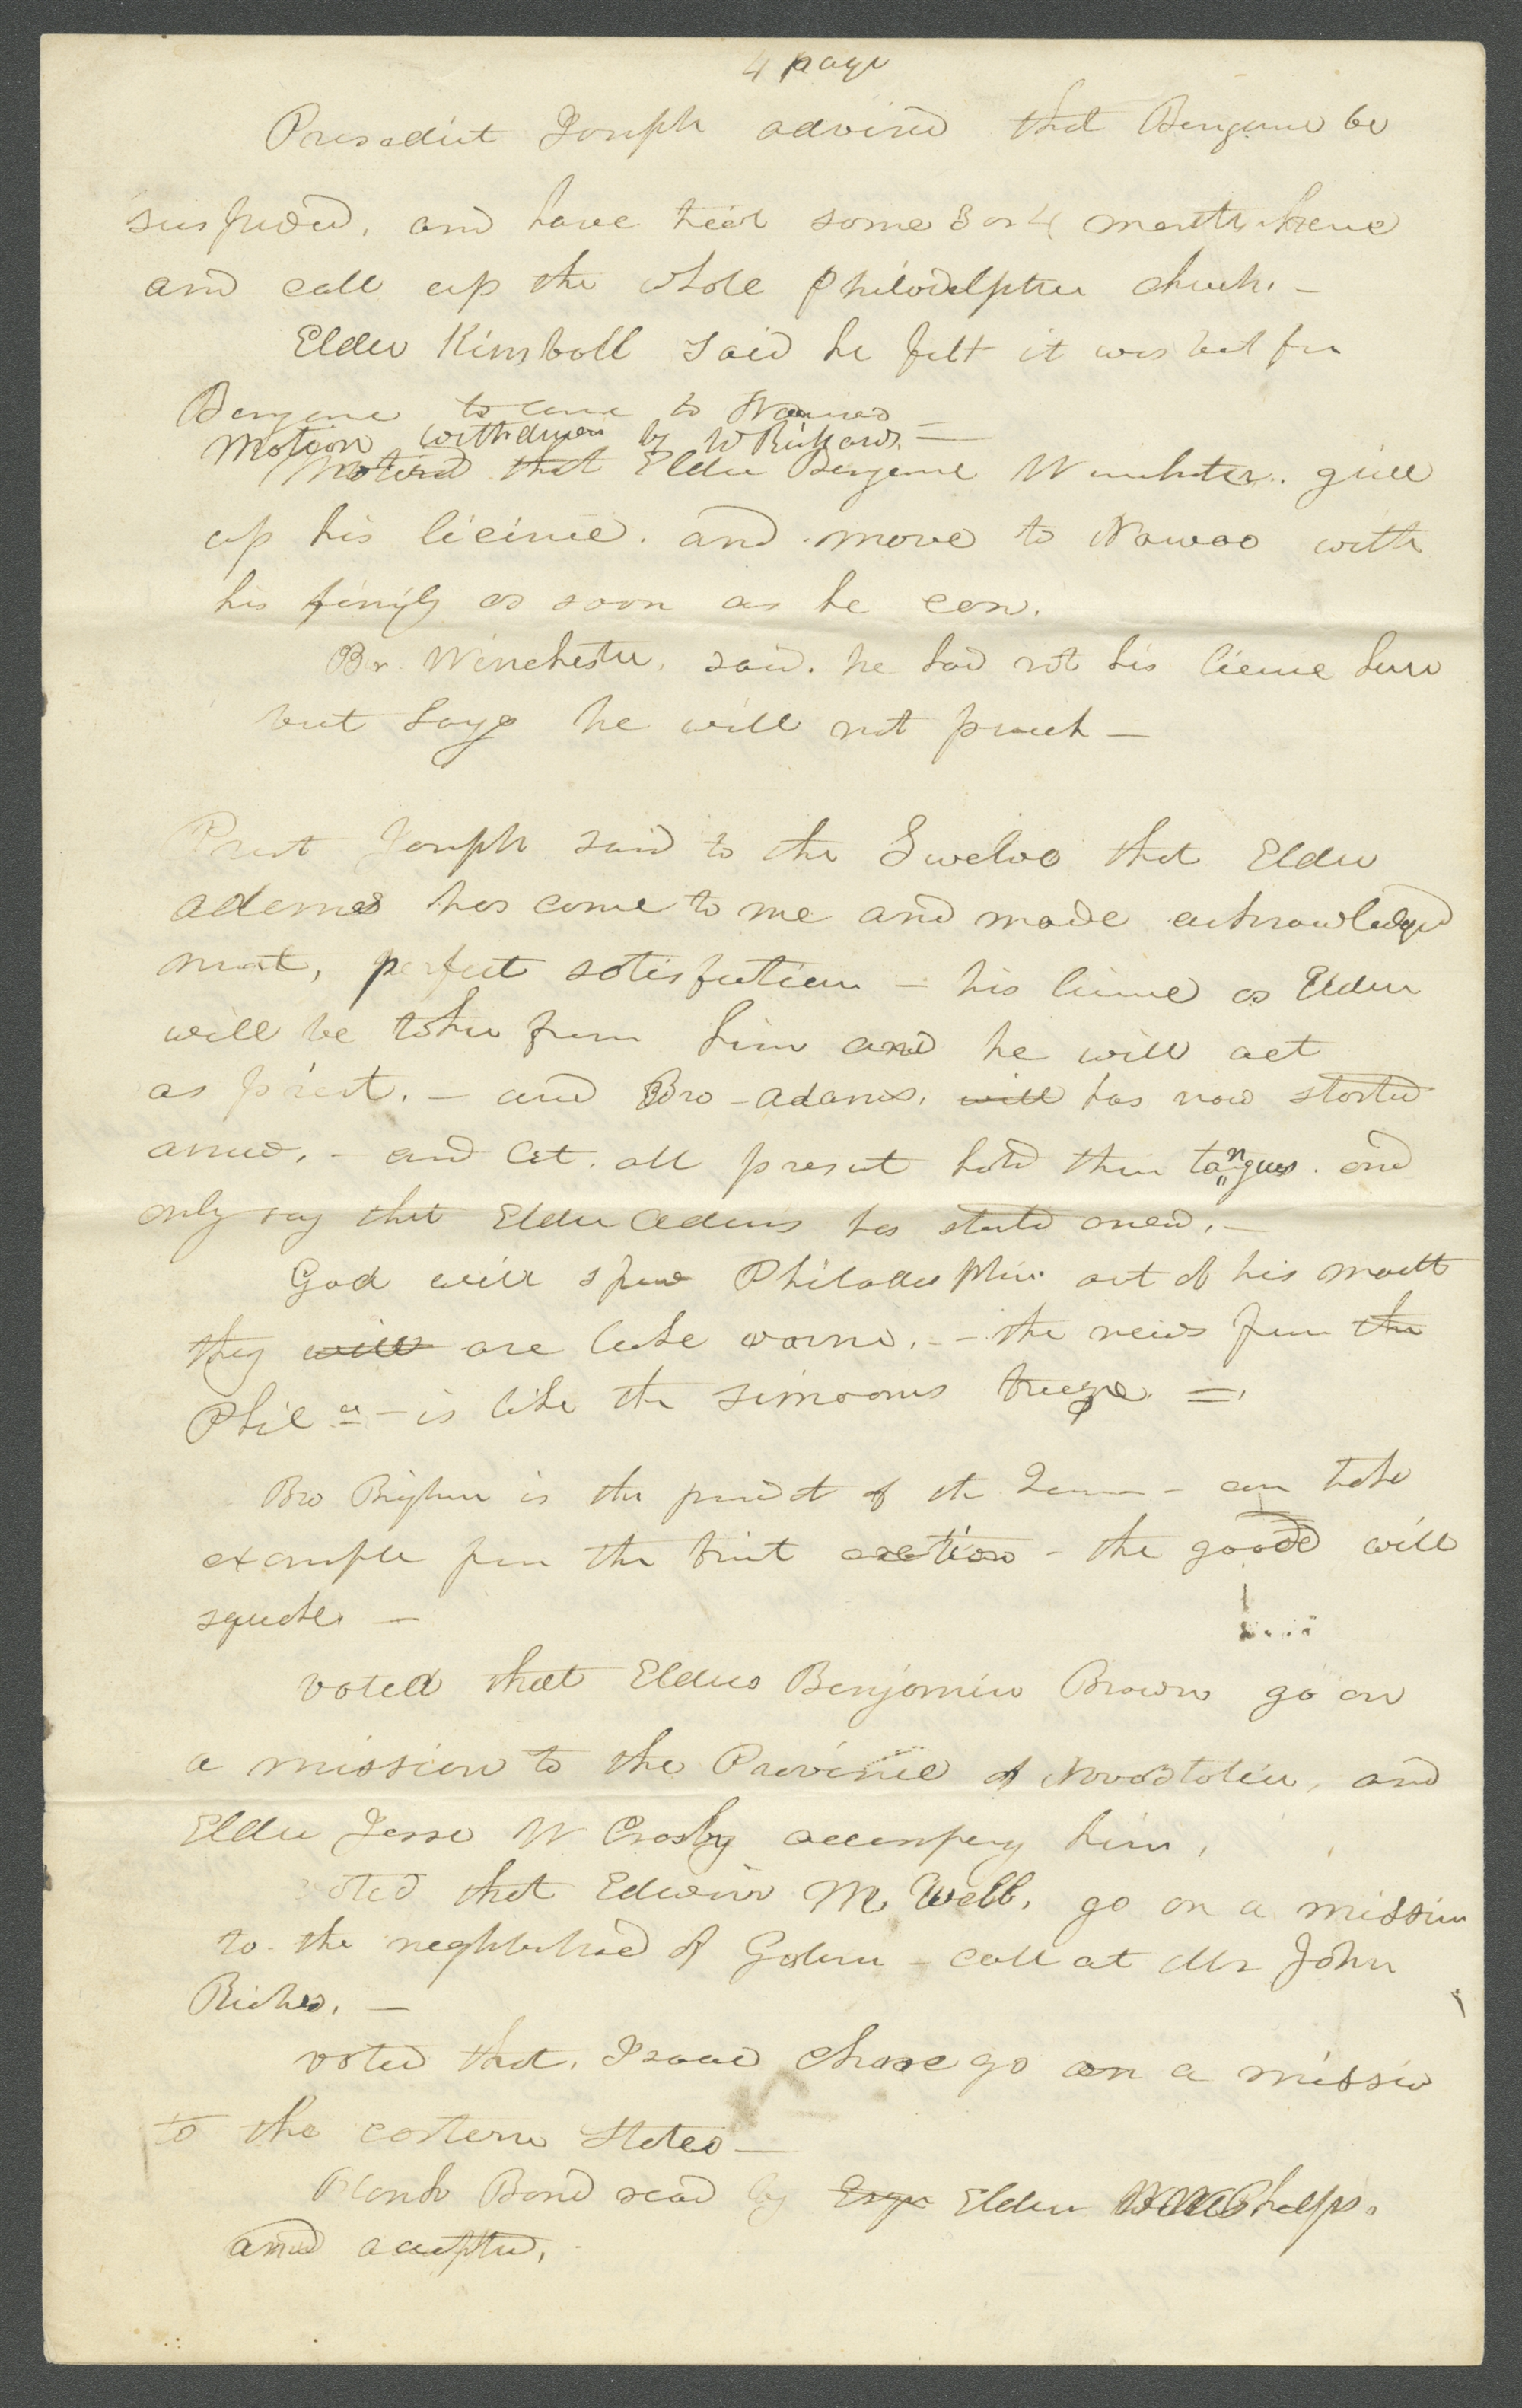 4 page
Presedict Joseph advised that Benjamin be
suspended, and have trial some 3 or 4 months hence
and call up the whole Philadelphia church. —
Elder Kimball said he felt it was best for
Benjamin to come to Nauvoo —
Motion withdrawn by W Richards. —
Motioned that Elder Benjamin Winchester. give
up his licince. and move to Nawoo with
his family as soon as he can.
Br. Winchester. said. he had not his licence here
but says he will not preach —
Prest Joseph said to the Twelve that Elder
Adams has come to me and made acknowledged
ment, perfect satisfaction — his licence as Elder
will be taken from him and he will act
as priest. — and Bro - Adams. will has now started
anew. - and let. all present hold their tongues. and
only say that Elder Adams has started anew. —
God will spew Philadelphia out of his mouth
they will are luke warm. — the news from the
Phila — is like the simoons breeze =
Bro Brigham is the presidt of the — can take
example from the — the good will
voted that Elders Benjamin Brown go on
a mission to the Province of Nova Scotia, and
Elder Jesse W Crosby accompany him,
voted that Edwin M. Webb. go on a mission
to the neghborhood of Galena — call at Mr John
Riches. —
voted that. Isaac Chase go on a mission
to the eastern States —
Blank Bond read by Esqr Elder W W Phelps.
and accepted.